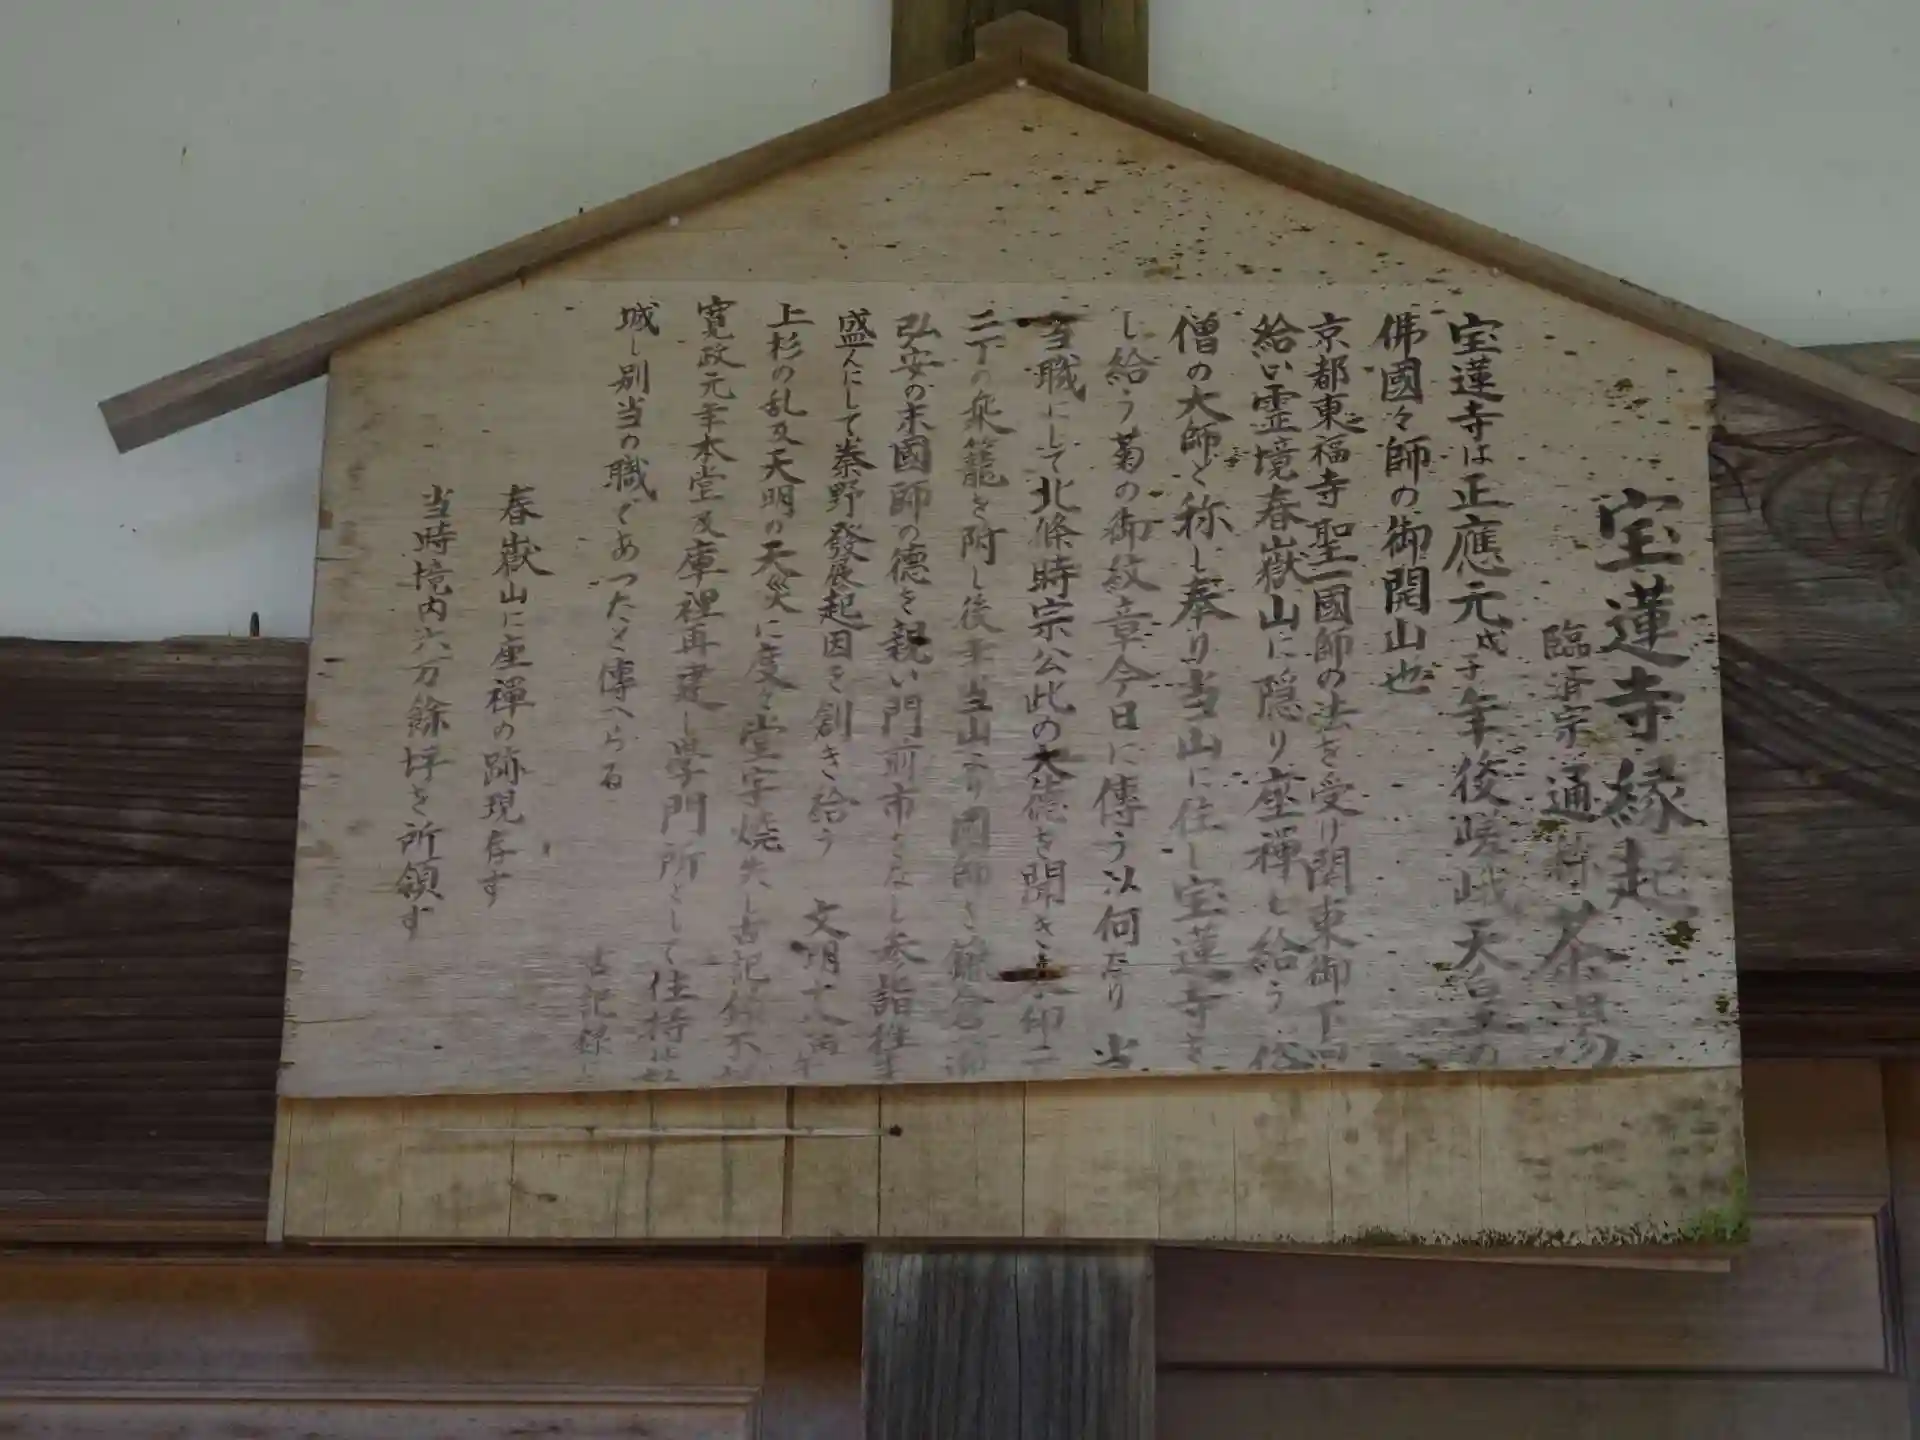 宝蓮寺縁起
臨済宗 通称 茶湯
宝蓮寺は正應元戊子年後嵯峨天皇の
佛國々師の御開山也
京都東福寺聖一國師の法を受け関東御下
給い霊境春嶽山に隠り座禅し給う 俗
僧の大師と称し奉り当山に住し宝蓮寺を
し給う菊の御紋章今日に傳う以何たり 当
当職にして北條時宗公此の大徳を聞き 印二
二丁の乗籠を附し後年当山より國師を鎌倉
弘安の末國師の德を親い門前市をなし参詣
盛んにして秦野發展起因を創き給う 文明十
上杉の乱及天明の天災に度々堂宇焼失し古記録不
寛政元年本堂及庫裡再建し学門所として住持
城し別当の職であつたと傳へらる 古記録
春嶽山に座禅の跡現存す
当時境内六万餘坪を所領す